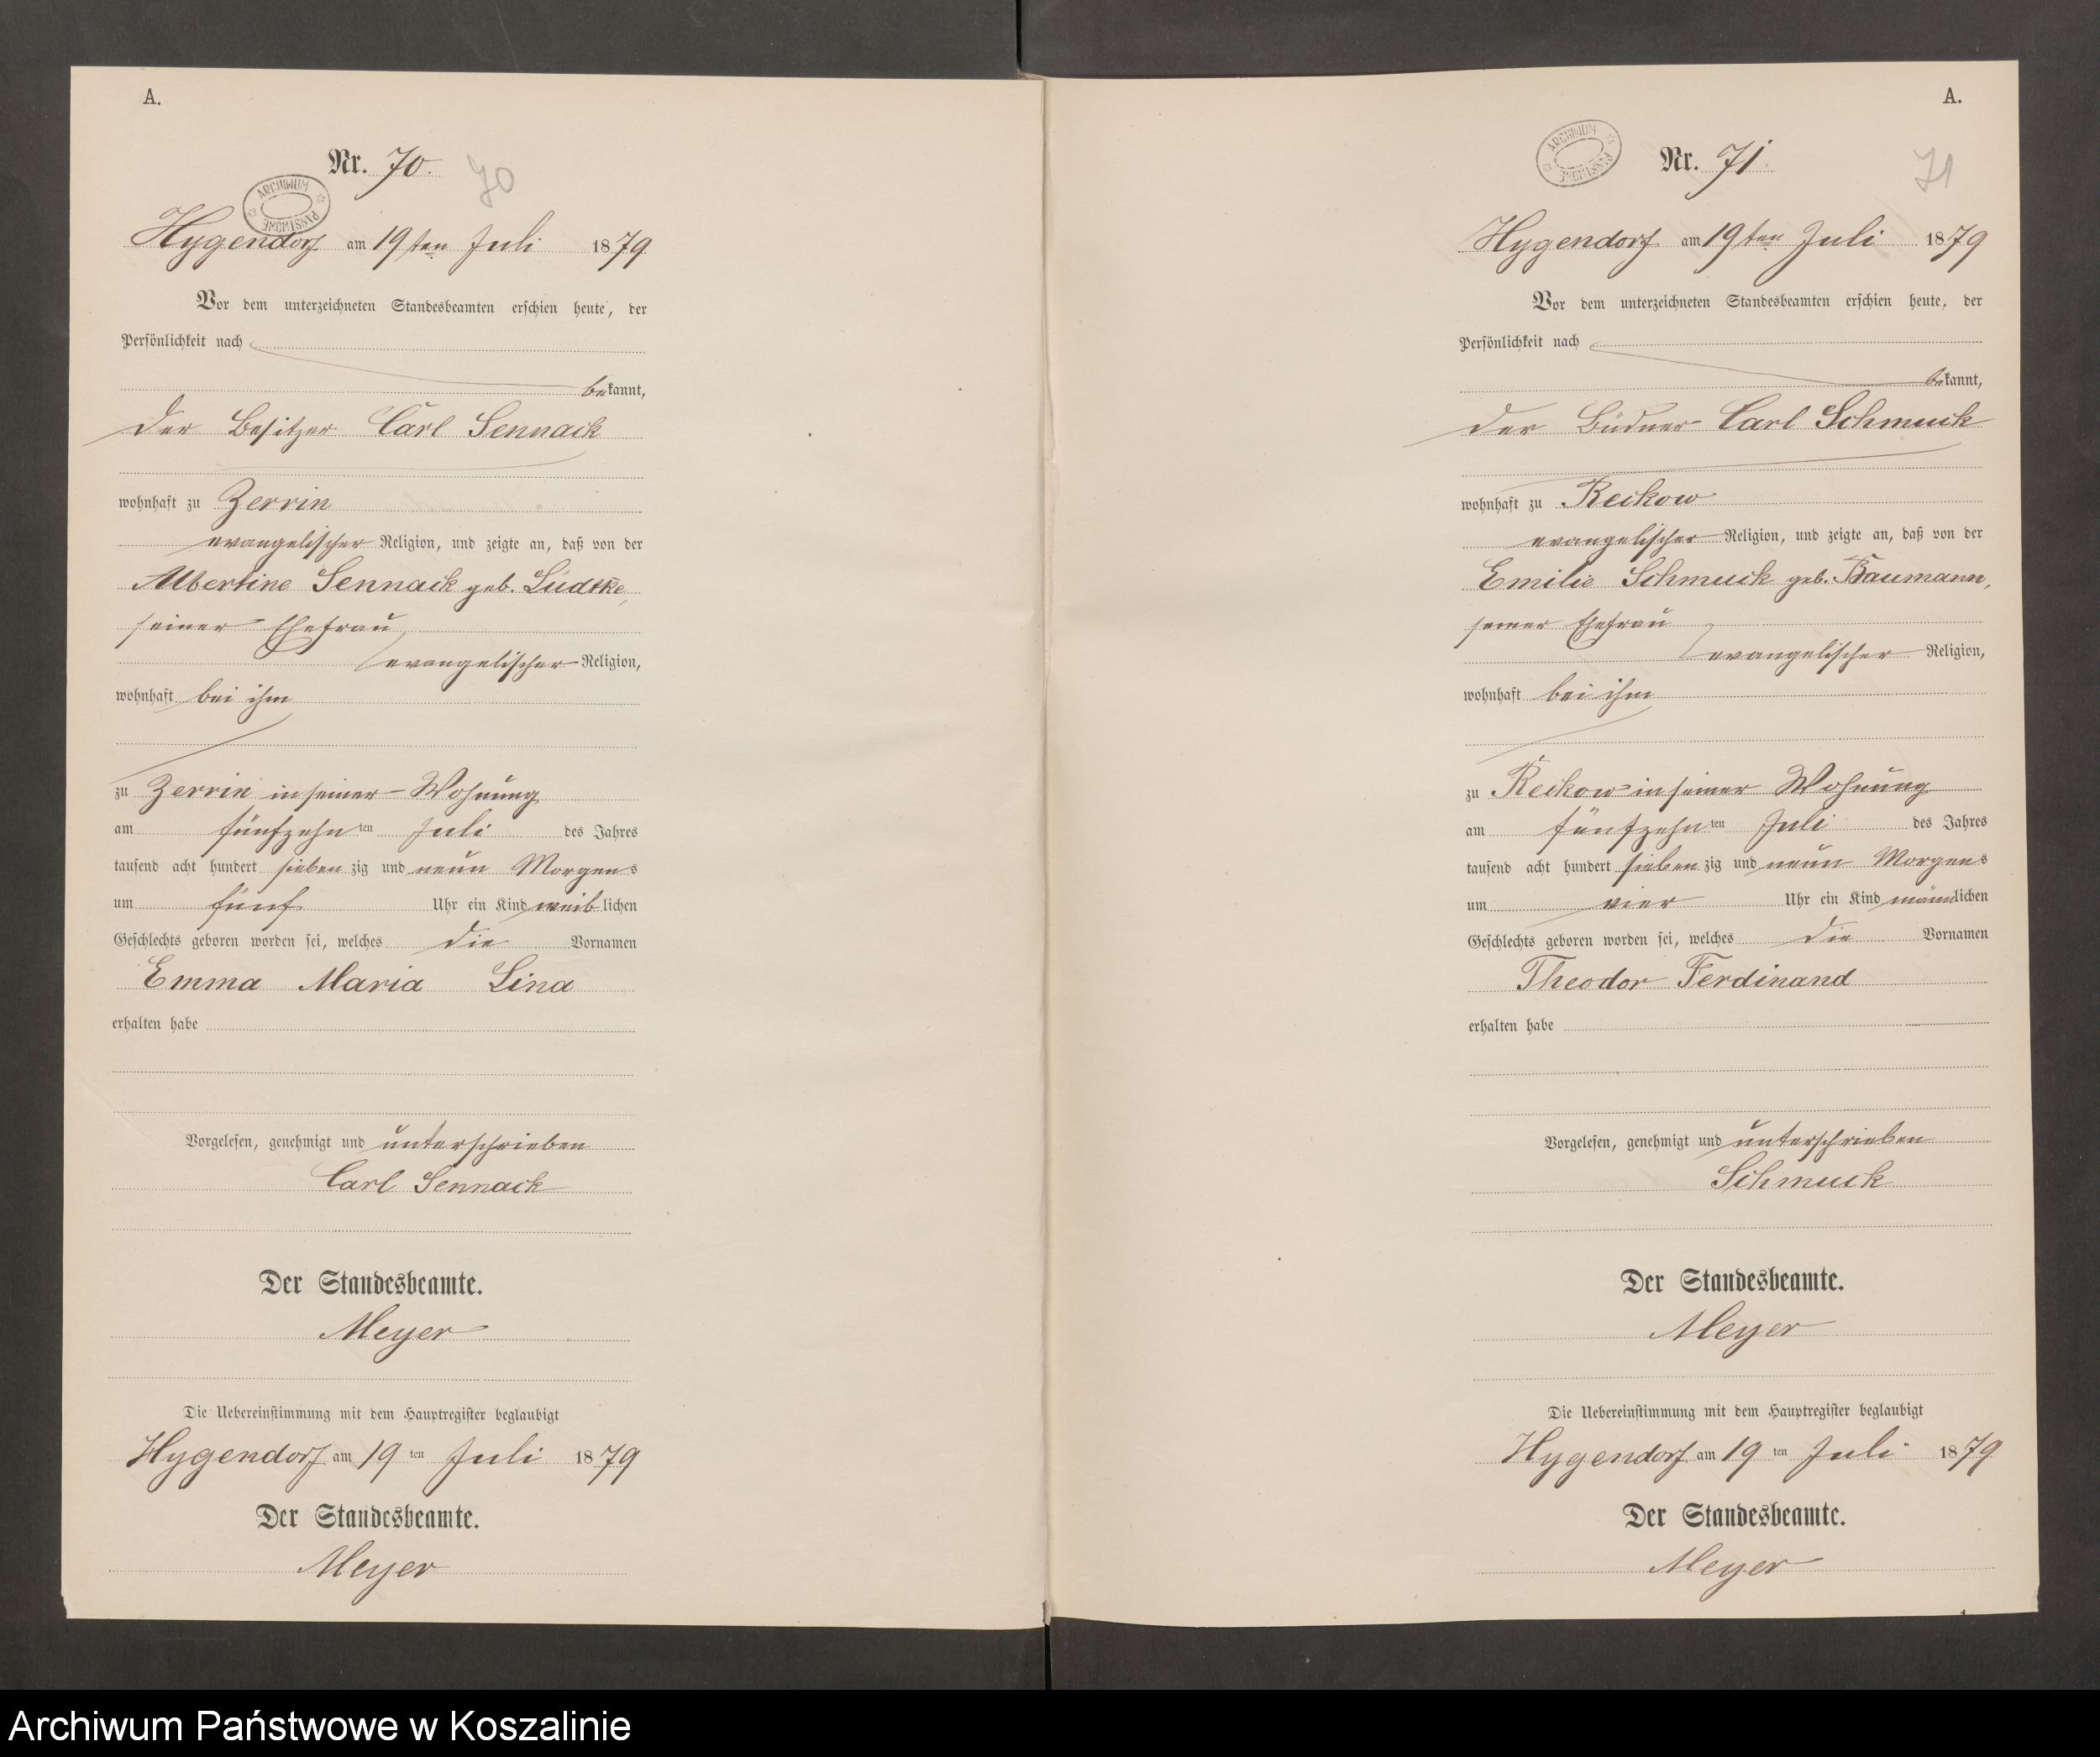 A.
Nr. 70.
70
ARCHIWUM PAŃSTWOWE
Hygendorf am 19ten Juli 1879
Vor dem unterzeichneten Standesbeamten erschien heute, der
Persönlichkeit nach
bekannt,
der Besitzer Carl Sennack
wohnhaft zu Zerrin
evangelischer Religion, und zeigte an, daß von der
Albertine Sennack geb. Lüdtke,
seiner Ehefrau,
evangelischer Religion,
wohnhaft bei ihm
zu Zerrin in seiner Wohnung
am fünfzehnten Juli des Jahres
tausend acht hundert siebenzig und neun Morgens
um fünf Uhr ein Kind weiblichen
Geschlechts geboren worden sei, welches die Vornamen
Emma Maria Lina
erhalten habe
Vorgelesen, genehmigt und unterschrieben
Carl Sennack
Der Standesbeamte.
Meyer
Die Uebereinstimmung mit dem Hauptregister beglaubigt
Hygendorf am 19ten Juli 1879
Der Standesbeamte.
Meyer
A.
ARCHIWUM PAŃSTWOWE
Nr. 71.
71
Hygendorf am 19ten Juli 1879
Vor dem unterzeichneten Standesbeamten erschien heute, der
Persönlichkeit nach
bekannt,
der Büdner Carl Schmuck
wohnhaft zu Reckow
evangelischer Religion, und zeigte an, daß von der
Emilie Schmuck geb. Baumann,
seiner Ehefrau
evangelischer Religion,
wohnhaft bei ihm
zu Reckow in seiner Wohnung
am fünfzehnten Juli des Jahres
tausend acht hundert siebenzig und neun Morgens
um vier Uhr ein Kind männlichen
Geschlechts geboren worden sei, welches die Vornamen
Theodor Ferdinand
erhalten habe
Vorgelesen, genehmigt und unterschrieben
Schmuck
Der Standesbeamte.
Meyer
Die Uebereinstimmung mit dem Hauptregister beglaubigt
Hygendorf am 19ten Juli 1879
Der Standesbeamte.
Meyer
Archiwum Państwowe w Koszalinie